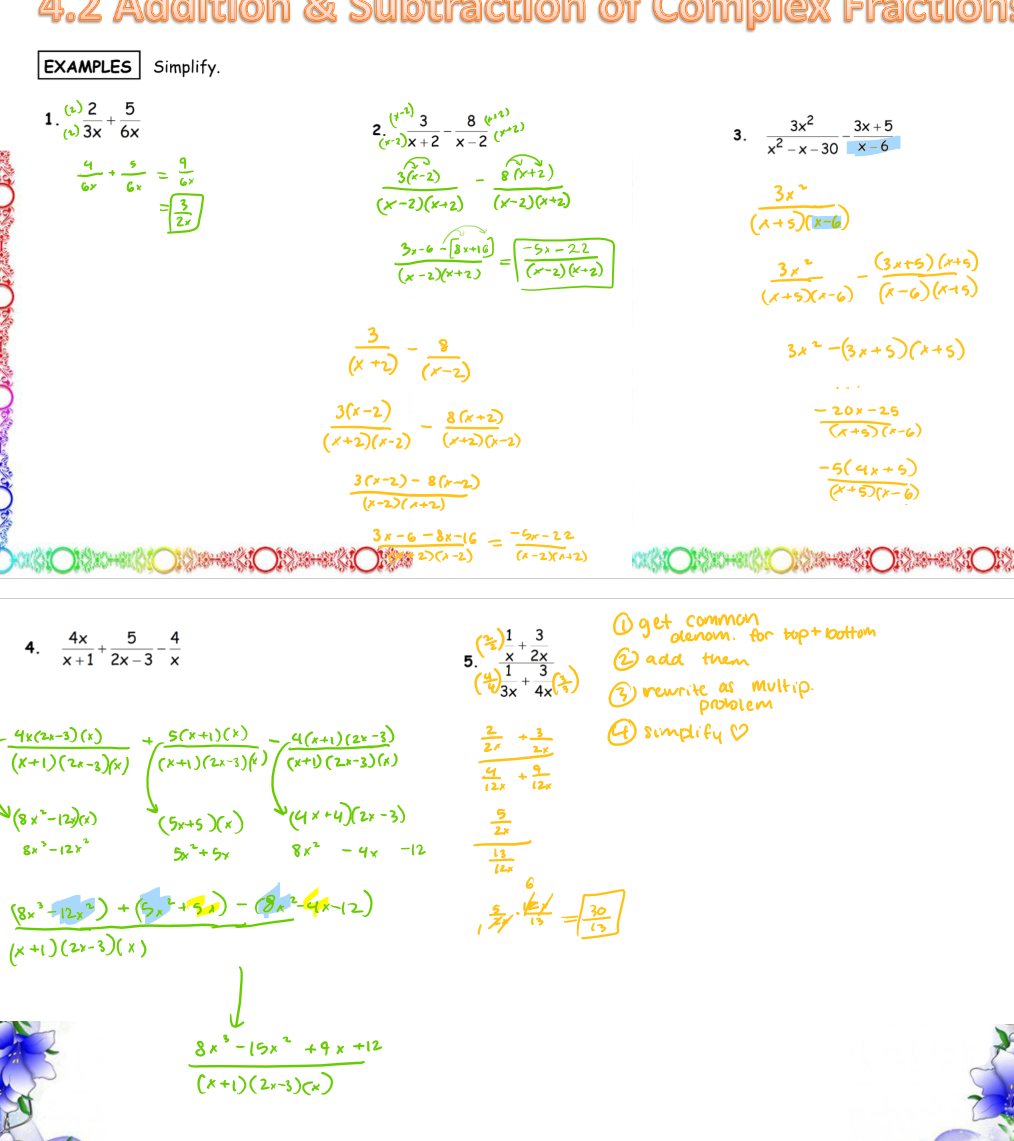 4.2 Addition & Subtraction of Complex Fractions
EXAMPLES Simplify.
1. (2) 2/(2) 3x + 5/6x
4/6x + 5/6x = 9/6x
= 3/2x
2. (x-2) 3/(x-2) x + 2 − 8 (x+2)/x − 2 (x+2)
3(x-2)/(x-2)(x+2) - 8(x+2)/(x-2)(x+2)
3x-6-[8x+16]/(x-2)(x+2) = -5x-22/(x-2)(x+2)
3/(x+2) - 8/(x-2)
3(x-2)/(x+2)(x-2) - 8(x+2)/(x+2)(x-2)
3(x-2) - 8(x-2)/(x-2)(x+2)
3x-6-8x-16/(x+2)(x-2) = -5x-22/(x-2)(x+2)
3. 3x²/x² − x − 30 − 3x + 5/x − 6
3x²/(x+5)(x-6)
3x²/(x+5)(x-6) - (3x+5)(x+5)/(x-6)(x+5)
3x² -(3x+5)(x+5)
...
-20x-25/(x+5)(x-6)
-5(4x+5)/(x+5)(x-6)
4. 4x/x + 1 + 5/2x − 3 − 4/x
4x(2x-3)(x)/(x+1)(2x-3)(x) + 5(x+1)(x)/(x+1)(2x-3)(x) - 4(x+1)(2x-3)/(x+1)(2x-3)(x)
(8x²-12x)(x) (5x+5)(x) (4x+4)(2x-3)
8x³-12x² 5x²+5x 8x² - 4x -12
(8x³-12x²) + (5x²+5x) - (8x²-4x-12)
(x+1)(2x-3)(x)
8x³-15x²+9x+12
(x+1)(2x-3)(x)
5. (2/2) 1/x + 3/2x
(4/4) 1/3x + 3/4x (3/3)
2/2x + 3/2x
4/12x + 9/12x
5/2x
13/12x
6
1 5/2x · 12x/13 = 30/13
① get common
denom. for top + bottom
② add them
③ rewrite as multip.
problem
④ simplify ♡